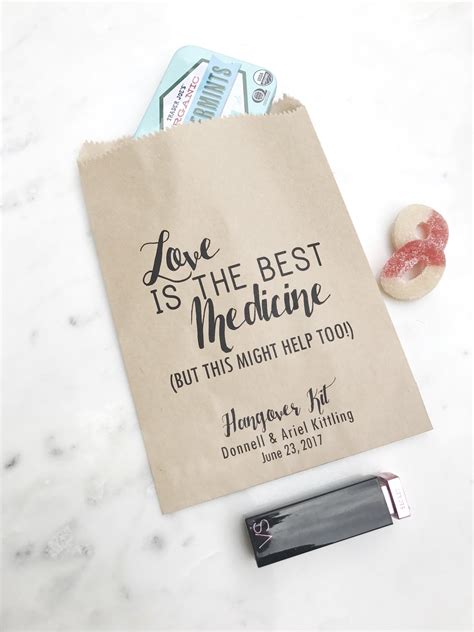 TRADER JOE'S
ORGANIC
PERMINTS
Love
IS THE BEST
Medicine
(BUT THIS MIGHT HELP TOO!)
Hangover Kit
Donnell & Ariel Kittling
June 23, 2017
VS